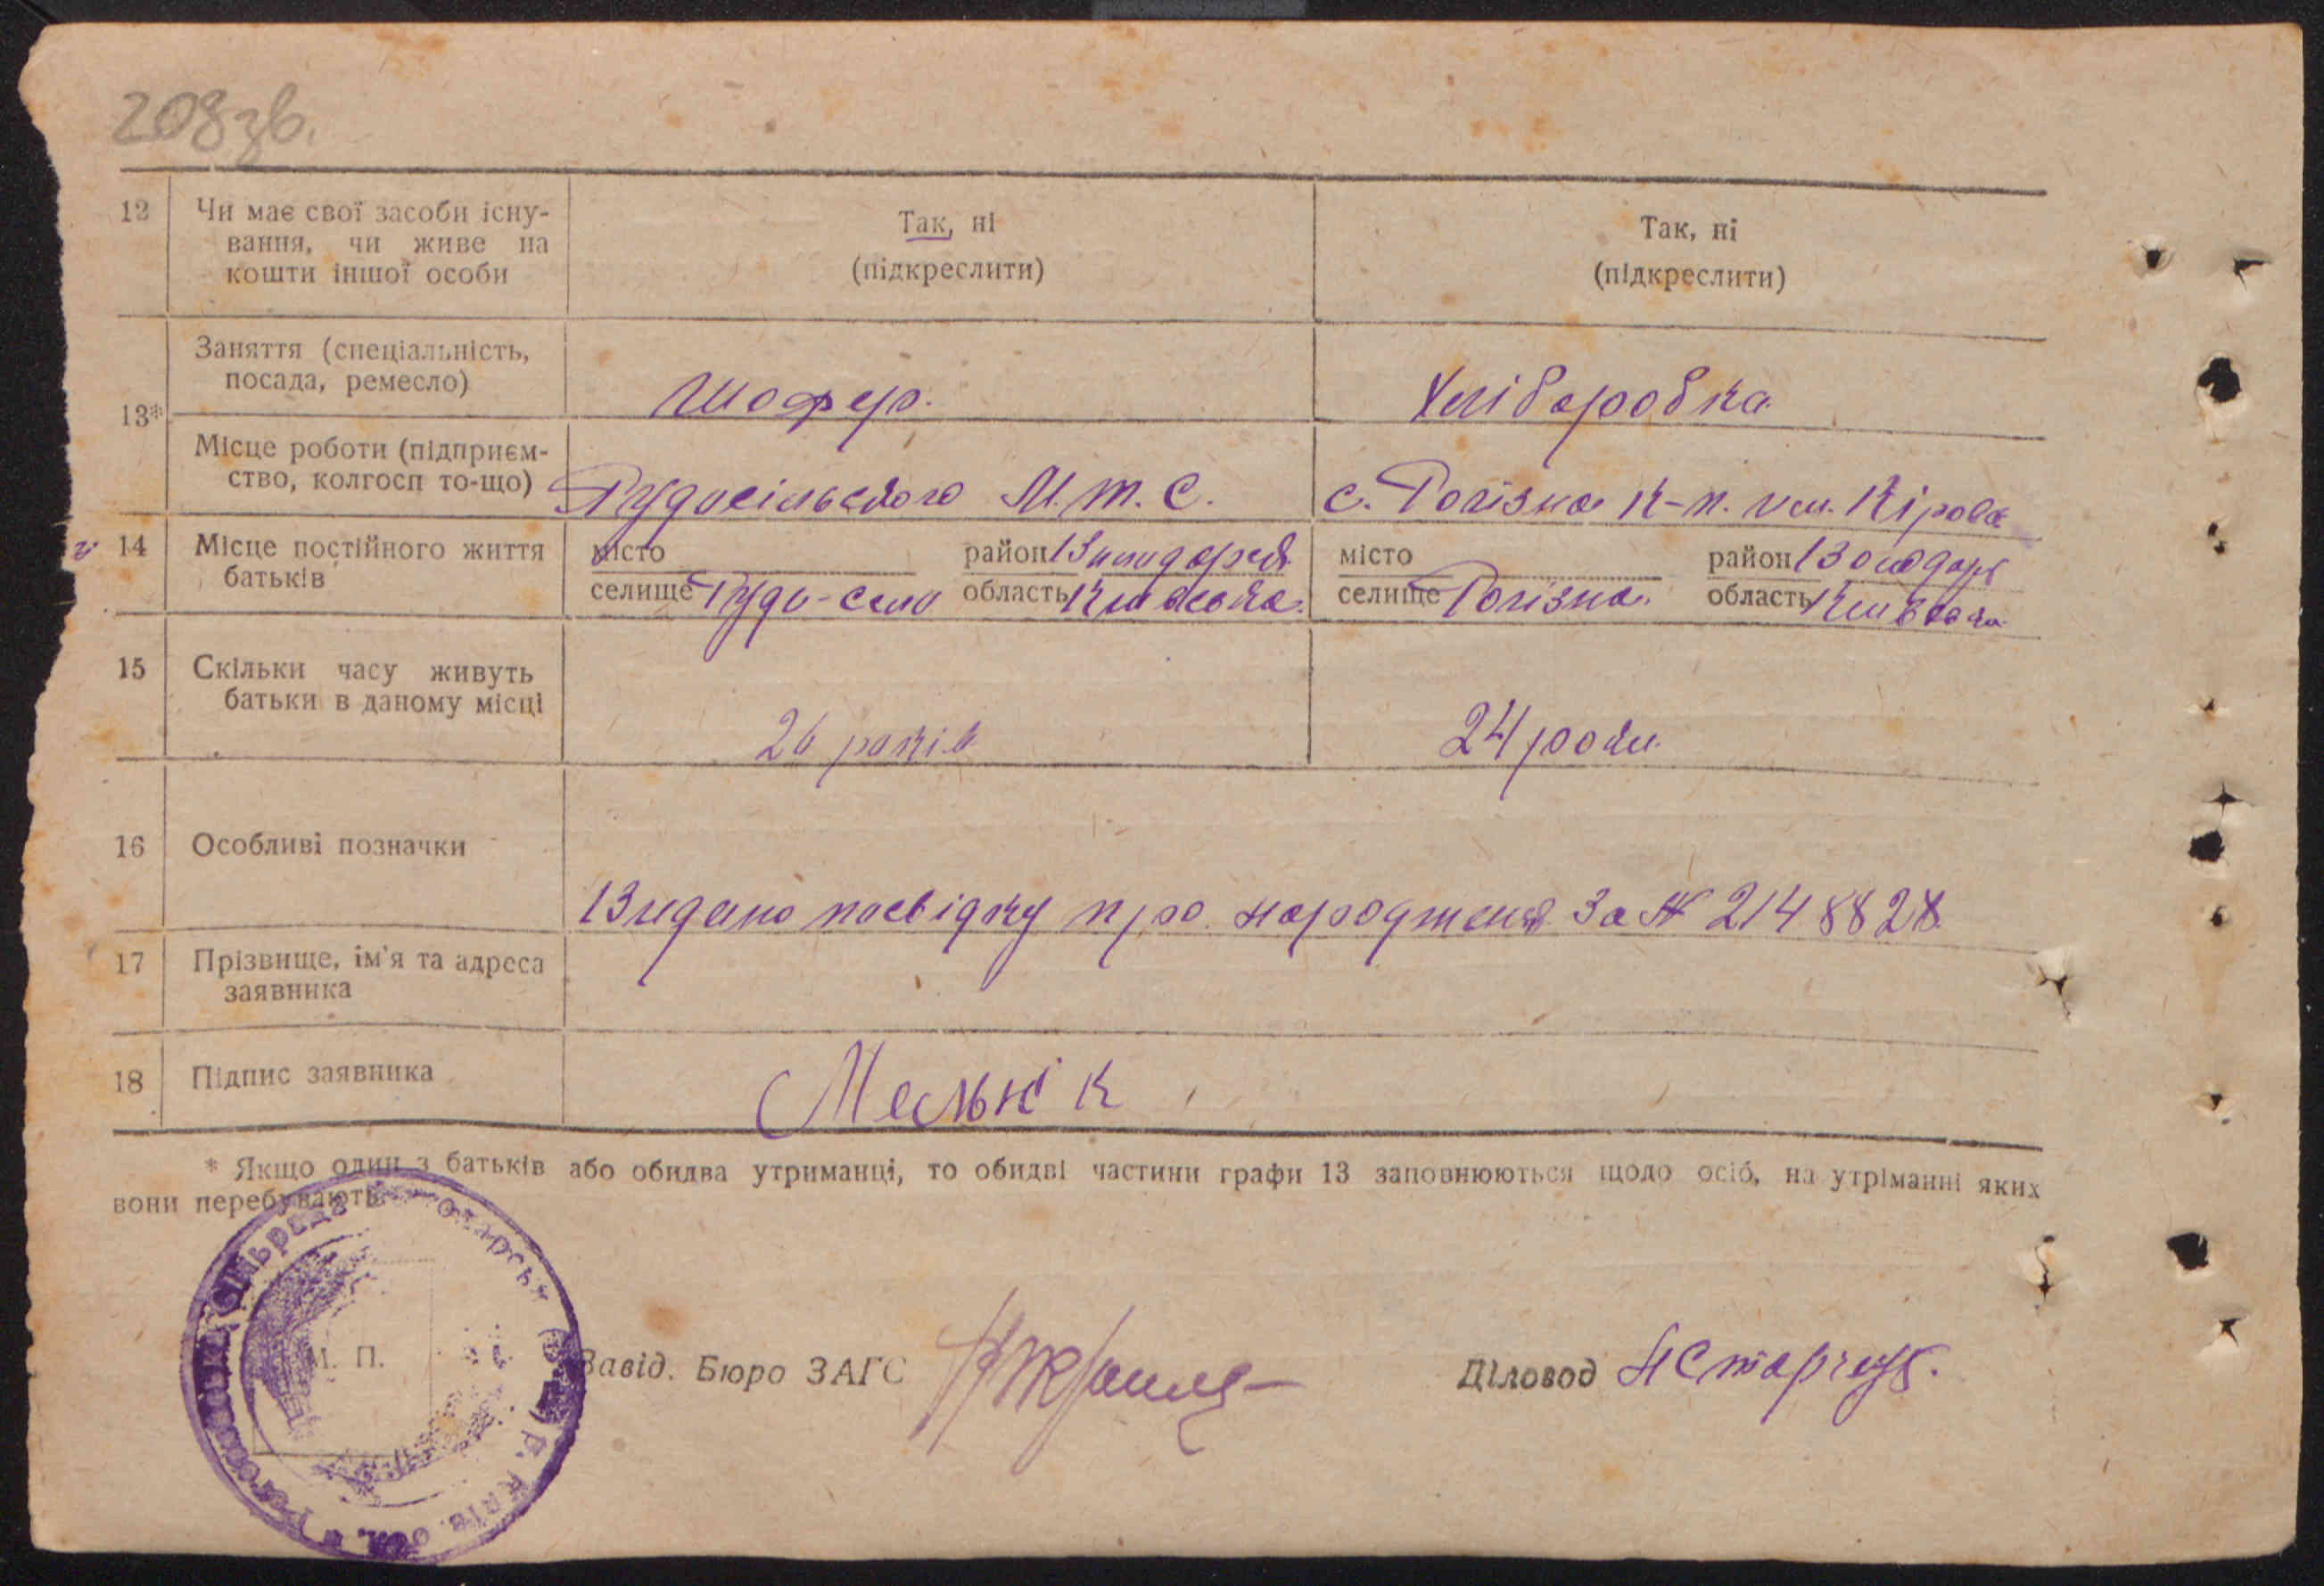 208зв.
12 Чи має свої засоби існу- Так, ні Так, ні
вання, чи живе на (підкреслити) (підкреслити)
кошти іншої особи
13* Заняття (спеціальність, шофер. Хліборобка
посада, ремесло)
Місце роботи (підприєм- Рудосільського М.т.с. с. Рогізна к-п. им. Кірова
ство, колгосп то-що)
14 Місце постійного життя місто район місто район
батьків селище Рудо-село область Київська селище Рогізна область Київська
15 Скільки часу живуть 26 років 24 роки
батьки в даному місці
16 Особливі позначки
Видано посвідку про народженя За № 2148828
17 Прізвище, ім'я та адреса
заявника
18 Підпис заявника Мельнік
* Якщо один з батьків або обидва утриманці, то обидві частини графи 13 заповнюються щодо осіб, на утріманні яких
вони перебувають.
М. П. Завід. Бюро ЗАГС Діловод